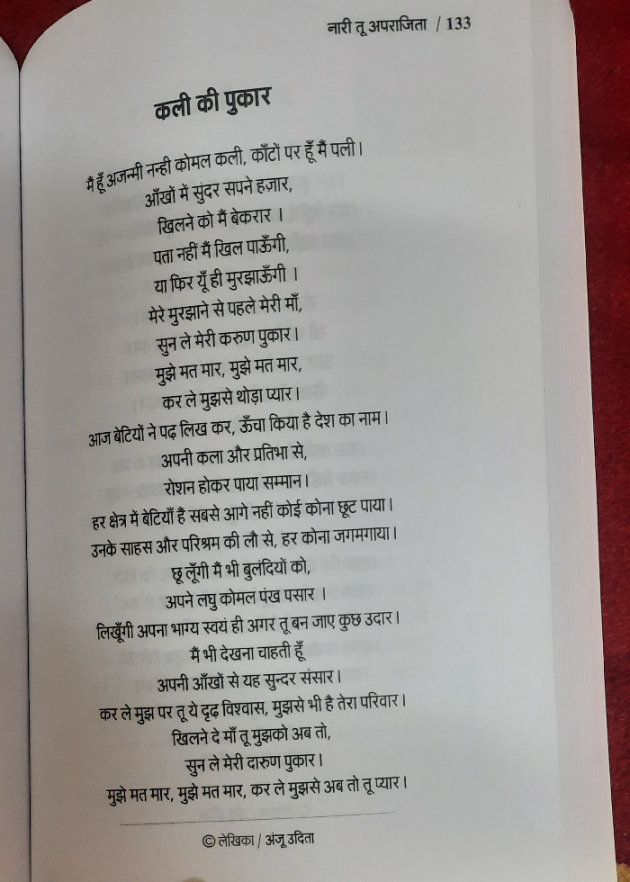 नारी तू अपराजिता / 133
कली की पुकार
मैं हूँ अजन्मी नन्ही कोमल कली, काँटों पर हूँ मैं पली।
आँखों में सुंदर सपने हज़ार,
खिलने को मैं बेकरार ।
पता नहीं मैं खिल पाऊँगी,
या फिर यूँ ही मुरझाऊँगी ।
मेरे मुरझाने से पहले मेरी माँ,
सुन ले मेरी करुण पुकार।
मुझे मत मार, मुझे मत मार,
कर ले मुझसे थोड़ा प्यार।
आज बेटियों ने पढ़ लिख कर, ऊँचा किया है देश का नाम।
अपनी कला और प्रतिभा से,
रोशन होकर पाया सम्मान।
हर क्षेत्र में बेटियाँ है सबसे आगे नहीं कोई कोना छूट पाया।
उनके साहस और परिश्रम की लौ से, हर कोना जगमगाया।
छू लूँगी मैं भी बुलंदियों को,
अपने लघु कोमल पंख पसार ।
लिखूँगी अपना भाग्य स्वयं ही अगर तू बन जाए कुछ उदार।
मैं भी देखना चाहती हूँ
अपनी आँखों से यह सुन्दर संसार।
कर ले मुझ पर तू ये दृढ़ विश्वास, मुझसे भी है तेरा परिवार।
खिलने दे माँ तू मुझको अब तो,
सुन ले मेरी दारुण पुकार।
मुझे मत मार, मुझे मत मार, कर ले मुझसे अब तो तू प्यार।
© लेखिका / अंजू उदिता